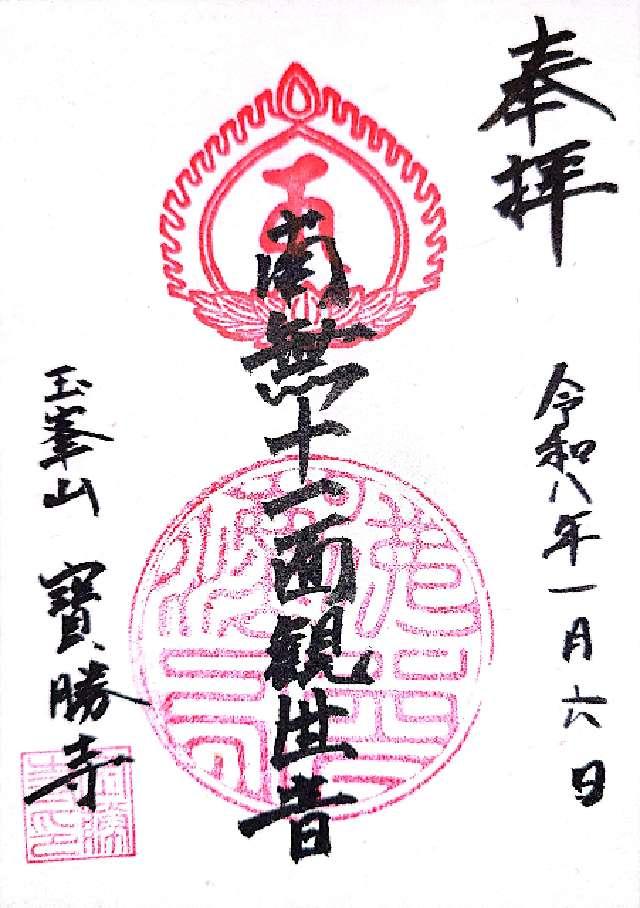 奉拝
令和八年一月六日
南無十一面観世音
玉峯山 寶勝寺